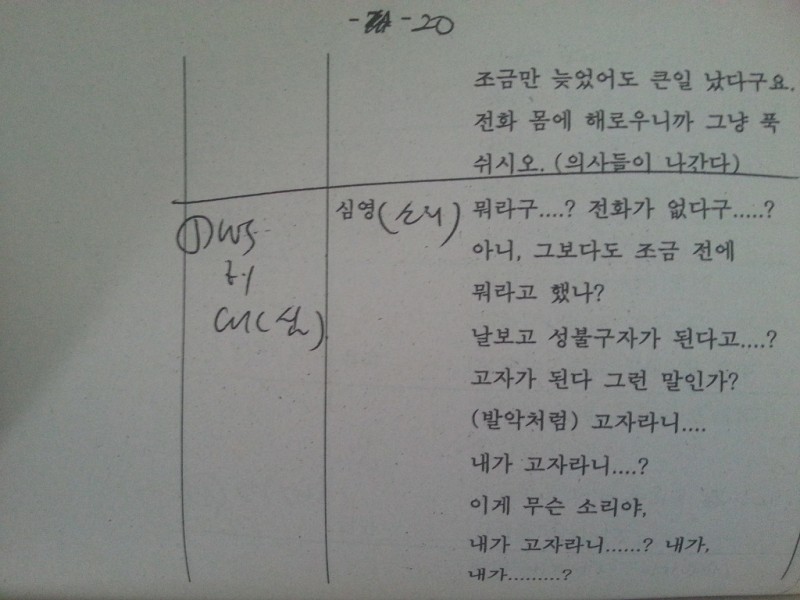 -20
조금만 늦었어도 큰일 났다구요.
전화 몸에 해로우니까 그냥 푹
쉬시오. (의사들이 나간다)
심영 (소리) 뭐라구....? 전화가 없다구.....?
① WS
아니, 그보다도 조금 전에
뭐라고 했나?
CU (심)
날보고 성불구자가 된다고....?
고자가 된다 그런 말인가?
(발악처럼) 고자라니....
내가 고자라니....?
이게 무슨 소리야,
내가 고자라니......? 내가,
내가.........?